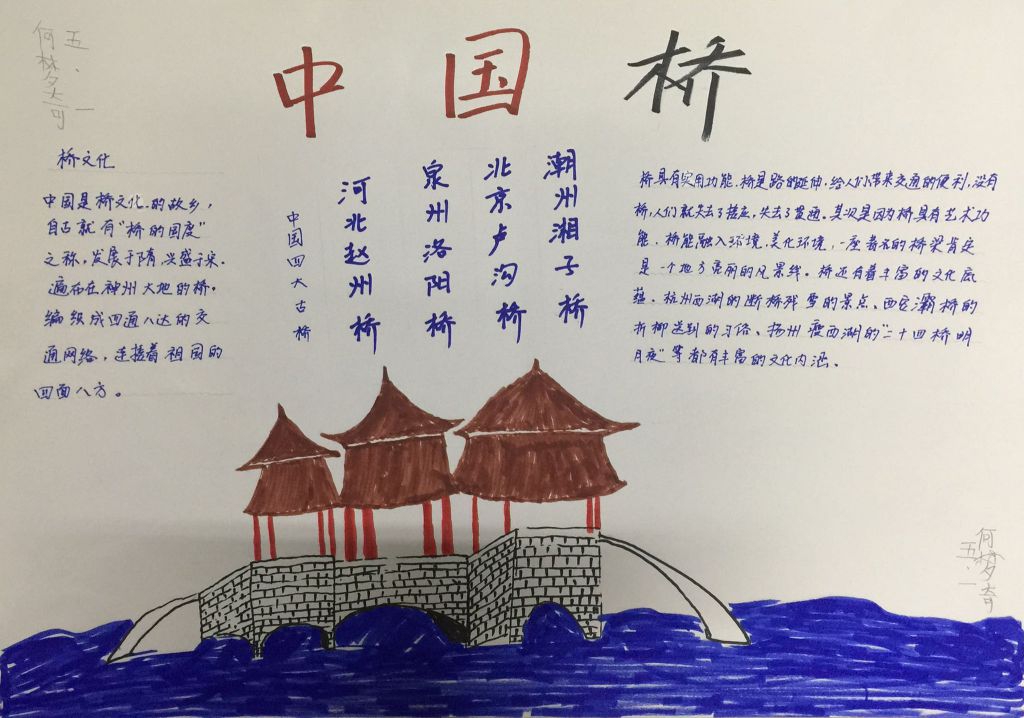 五.一
何梦奇
中国桥
桥文化
中国是桥文化的故乡，
自古就有“桥的国度”
之称，发展于隋，兴盛于宋.
遍布在神州大地的桥.
编织成四通八达的交
通网络，连接着祖国的
四面八方。
中国四大古桥
河北赵州桥
泉州洛阳桥
北京卢沟桥
潮州湘子桥
桥具有实用功能.桥是路的延伸,给人们带来交通的便利,没有
桥,人们就失去了接应,失去了贯通.其次是因为桥具有艺术功
能.桥能融入环境,美化环境,一座著名的桥梁肯定
是一个地方亮丽的风景线.桥还有着丰富的文化底
蕴.杭州西湖的断桥残雪的景点、西安灞桥的
折柳送别的习俗、扬州瘦西湖的“二十四桥明
月夜”等都有丰富的文化内涵.
何梦奇
五.一